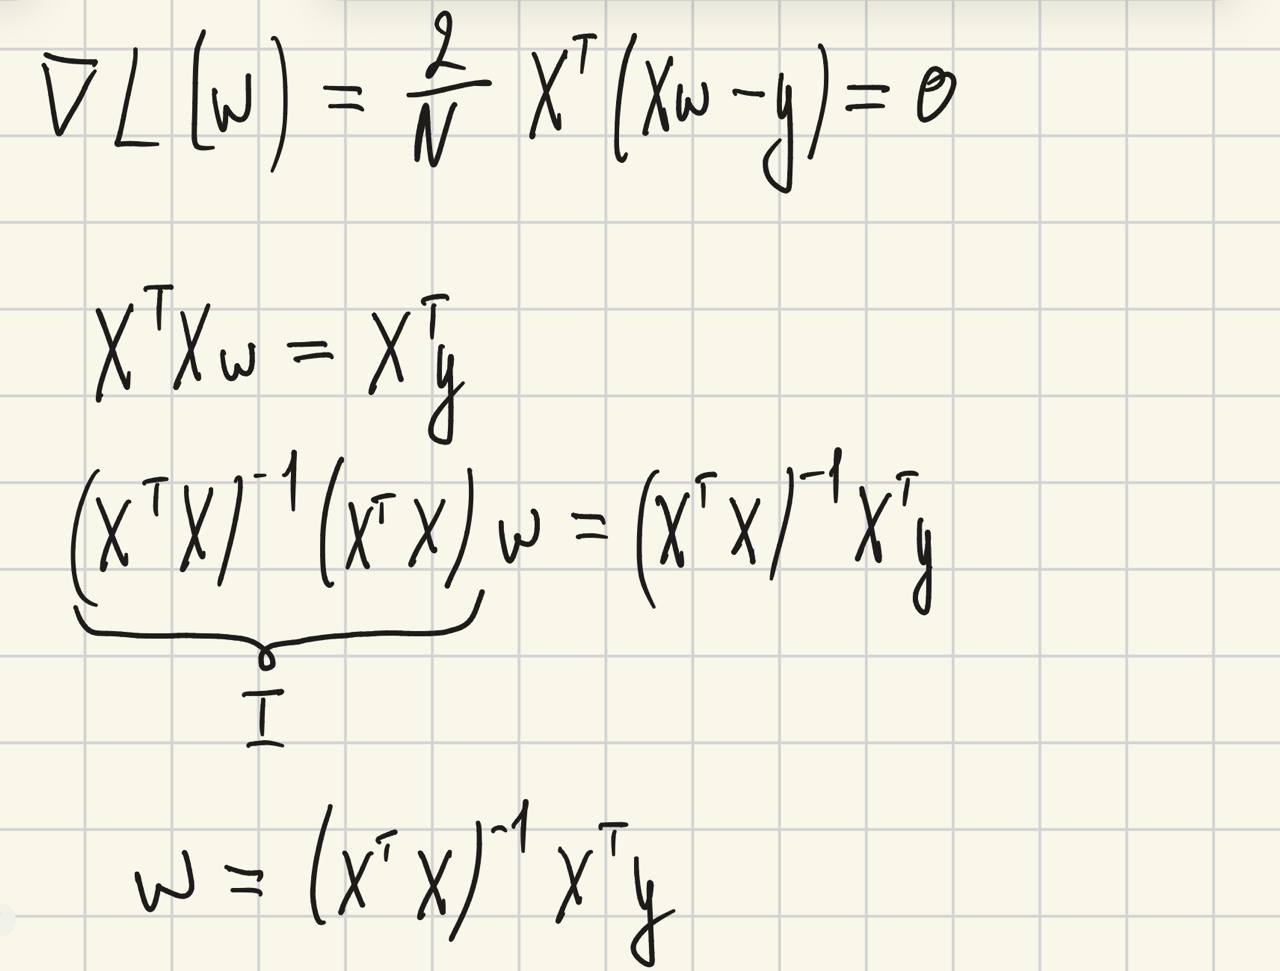 ∇L(w) = 2/N Xᵀ(Xw − y) = 0
XᵀXw = Xᵀy
(XᵀX)⁻¹(XᵀX)w = (XᵀX)⁻¹Xᵀy
I
w = (XᵀX)⁻¹Xᵀy